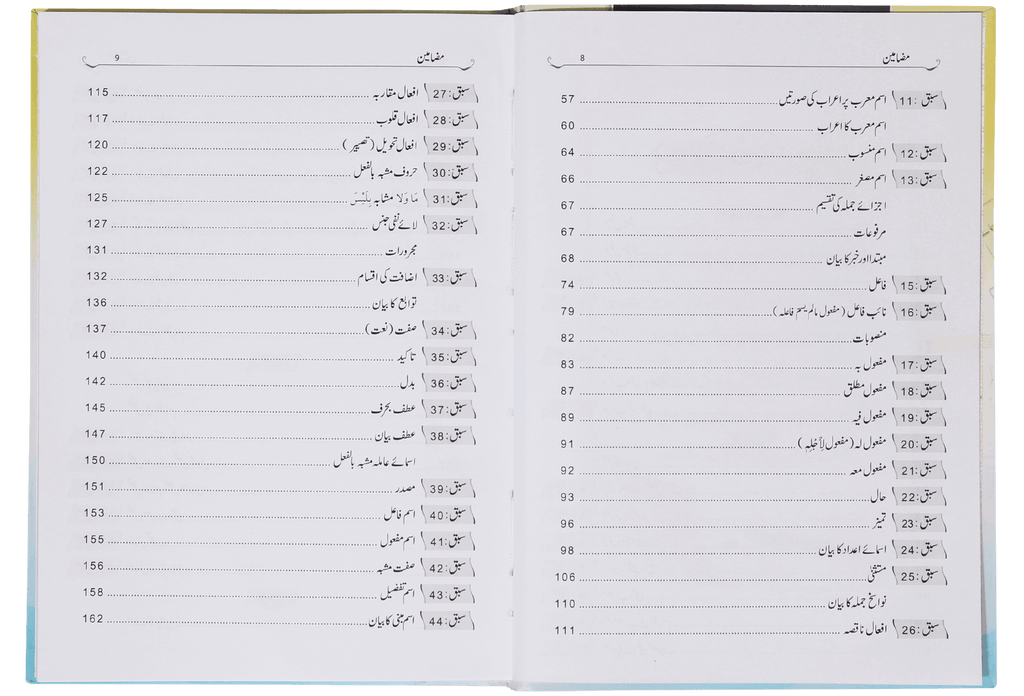 مضامین 8
سبق :11 اسم معرب پر اعراب کی صورتیں ........ 57
اسم معرب کا اعراب ........ 60
سبق:12 اسم منسوب ........ 64
سبق:13 اسم مصغر ........ 66
اجزائے جملہ کی تقسیم ........ 67
مرفوعات ........ 67
مبتدا اور خبر کا بیان ........ 68
سبق:15 فاعل ........ 74
سبق:16 نائب فاعل (مفعول مالم یسم فاعلہ) ........ 79
منصوبات ........ 82
سبق:17 مفعول بہ ........ 83
سبق:18 مفعول مطلق ........ 87
سبق:19 مفعول فیہ ........ 89
سبق:20 مفعول لہ (مفعول لِأَجْلِہٖ) ........ 91
سبق:21 مفعول معہ ........ 92
سبق:22 حال ........ 93
سبق:23 تمیز ........ 96
سبق:24 اسمائے اعداد کا بیان ........ 98
سبق:25 مستثنیٰ ........ 106
نواسخ جملہ کا بیان ........ 110
سبق:26 افعال ناقصہ ........ 111
مضامین 9
سبق:27 افعال مقاربہ ........ 115
سبق:28 افعال قلوب ........ 117
سبق:29 افعال تحویل (تصییر) ........ 120
سبق:30 حروف مشبہ بالفعل ........ 122
سبق:31 مَا وَلَا مشابہ بِلَیْسَ ........ 125
سبق:32 لائے نفی جنس ........ 127
مجرورات ........ 131
سبق:33 اضافت کی اقسام ........ 132
توابع کا بیان ........ 136
سبق:34 صفت (نعت) ........ 137
سبق:35 تاکید ........ 140
سبق:36 بدل ........ 142
سبق:37 عطف بحرف ........ 145
سبق:38 عطف بیان ........ 147
اسمائے عاملہ مشبہ بالفعل ........ 150
سبق:39 مصدر ........ 151
سبق:40 اسم فاعل ........ 153
سبق:41 اسم مفعول ........ 155
سبق:42 صفت مشبہ ........ 156
سبق:43 اسم تفضیل ........ 158
سبق:44 اسم مبنی کا بیان ........ 162